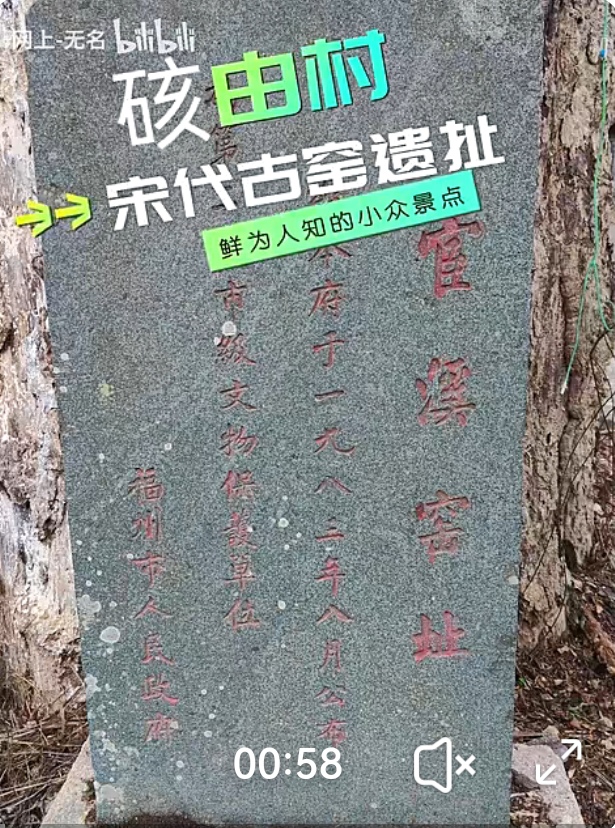 网上-无名 bilibili
硋由村
宋代古窑遗址
鲜为人知的小众景点
宦溪窑址
本府于一九八二年八月公布
市级文物保护单位
福州市人民政府
00:58